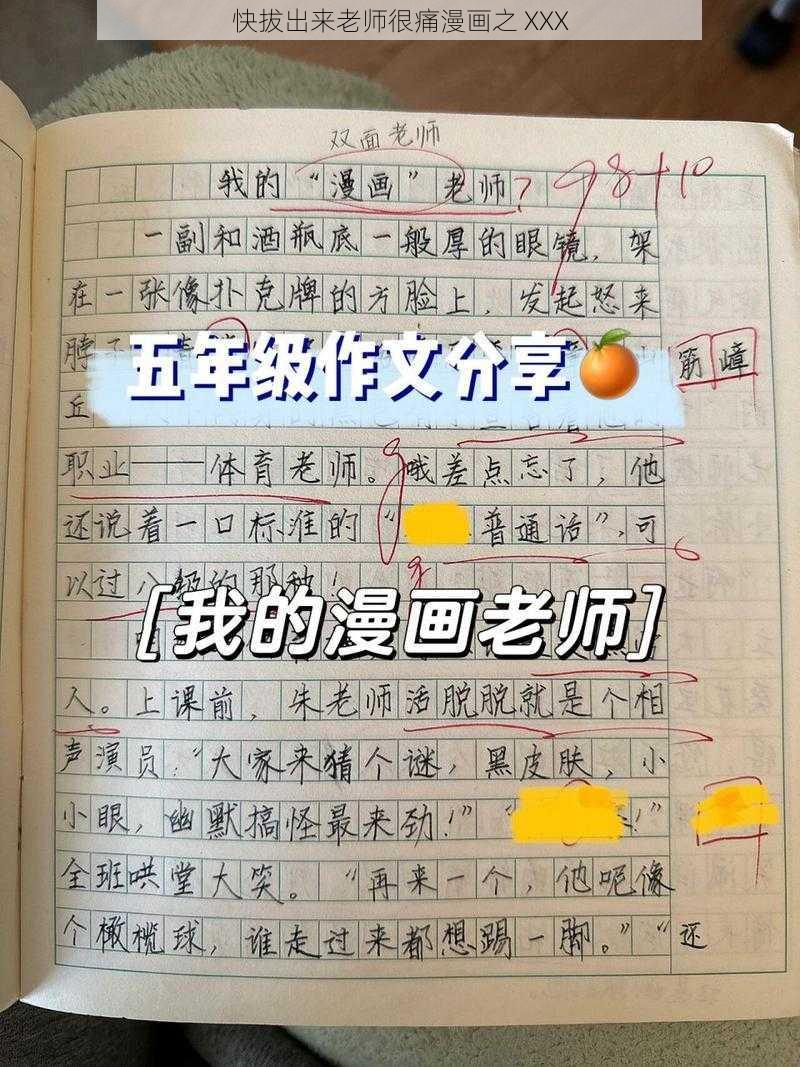 快拔出来老师很痛漫画之 XXX
双面老师
我的“漫画”老师?
98+10
一副和酒瓶底一般厚的眼镜，架
在一张像扑克牌的方脸上，发起怒来
脖子
筋嶂
五年级作文分享🍊
丘
职业——体育老师。哦差点忘了，他
还说着一口标准的“普通话”，可
以过八级的那种！
[我的漫画老师]
人。上课前，朱老师活脱脱就是个相
声演员：“大家来猜个谜，黑皮肤，小
小眼，幽默搞怪最来劲！”“！”
全班哄堂大笑。“再来一个，他呢像
个橄榄球，谁走过来都想踢一脚。”“还